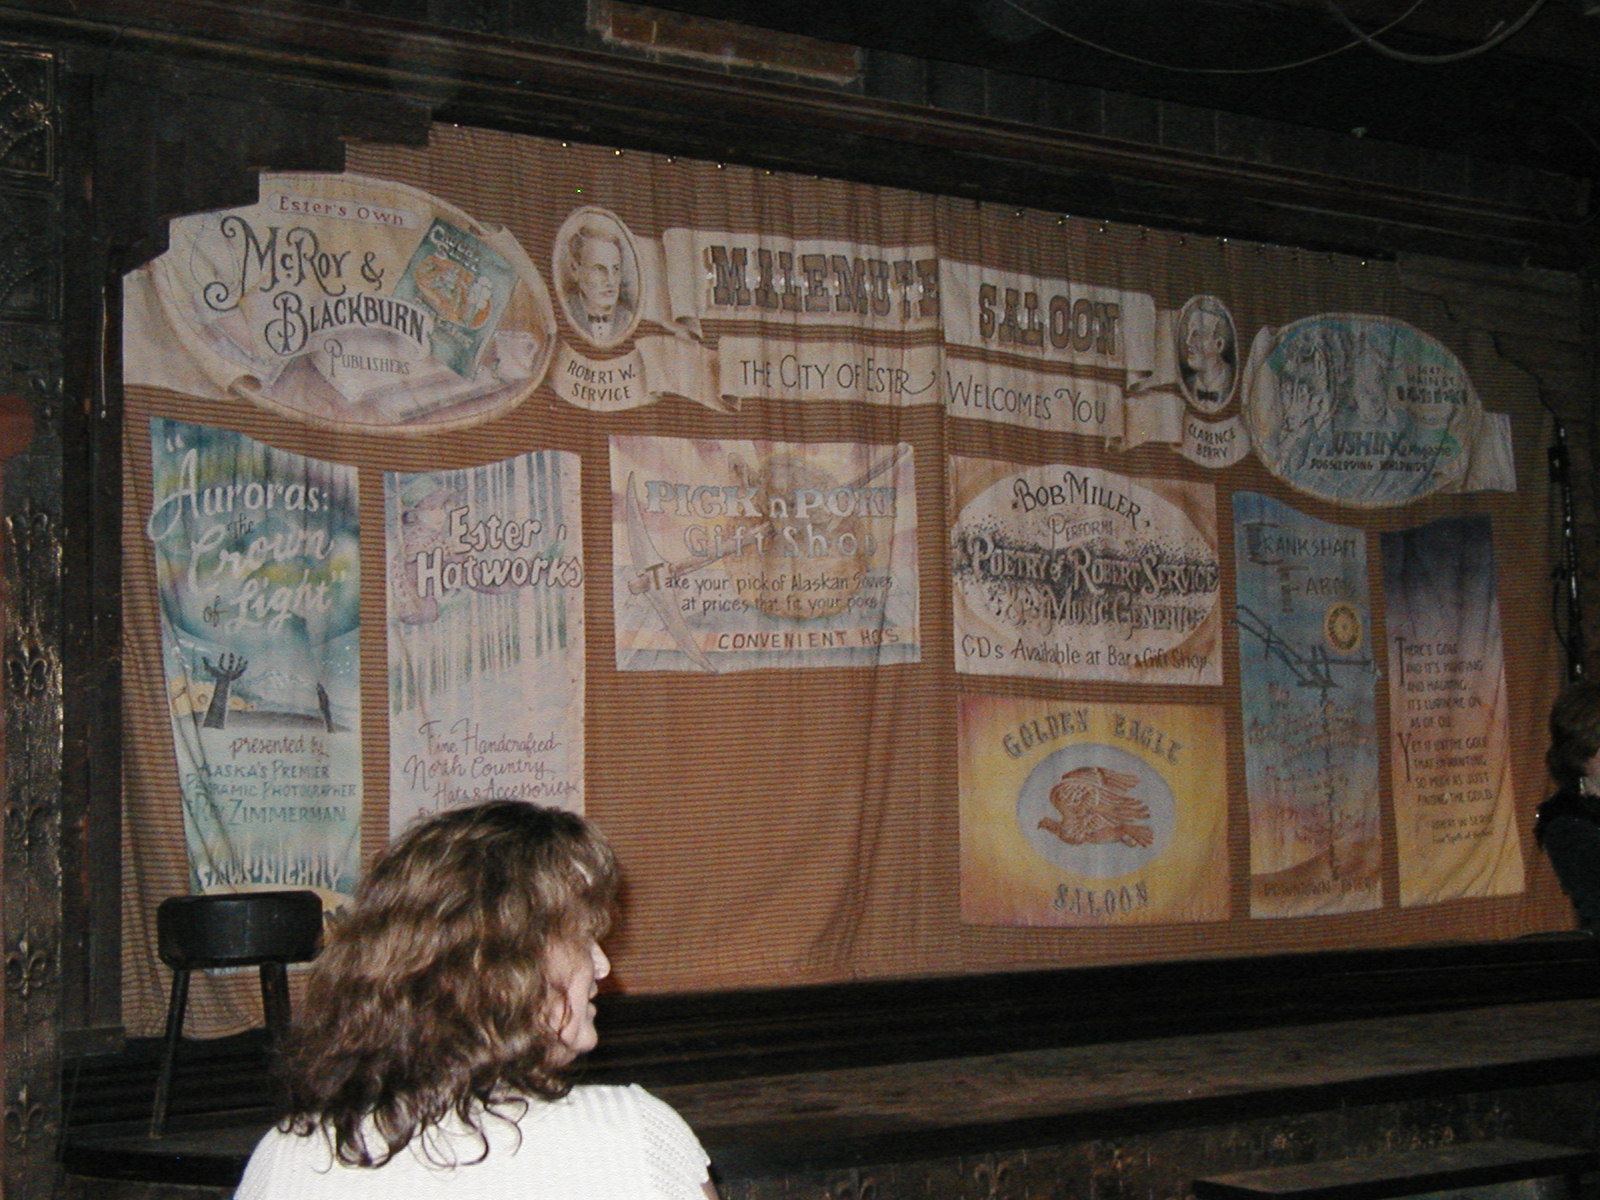 Ester's Own
McRoy &
Blackburn
Publishers
Robert W.
Service
MALEMUTE
SALOON
The City of Ester
Welcomes You
Clarence
Berry
Mushing
Magazine
Dogsledding Worldwide
"Auroras:
the
Crown
of Light"
presented by
Alaska's Premier
Panoramic Photographer
LeRoy Zimmerman
Ester
Hatworks
Fine Handcrafted
North Country
Hats & Accessories
Pick n Poke
Gift Shop
Take your pick of Alaskan
at prices that fit your poke
CONVENIENT
Bob Miller
Performs
Poetry of Robert Service
CDs Available at Bar & Gift Shop
GOLDEN EAGLE
SALOON
There's gold
and it's haunting
and haunting,
it's luring me on
as of old
Yet it isn't the gold
that I'm wanting
so much as just
finding the gold